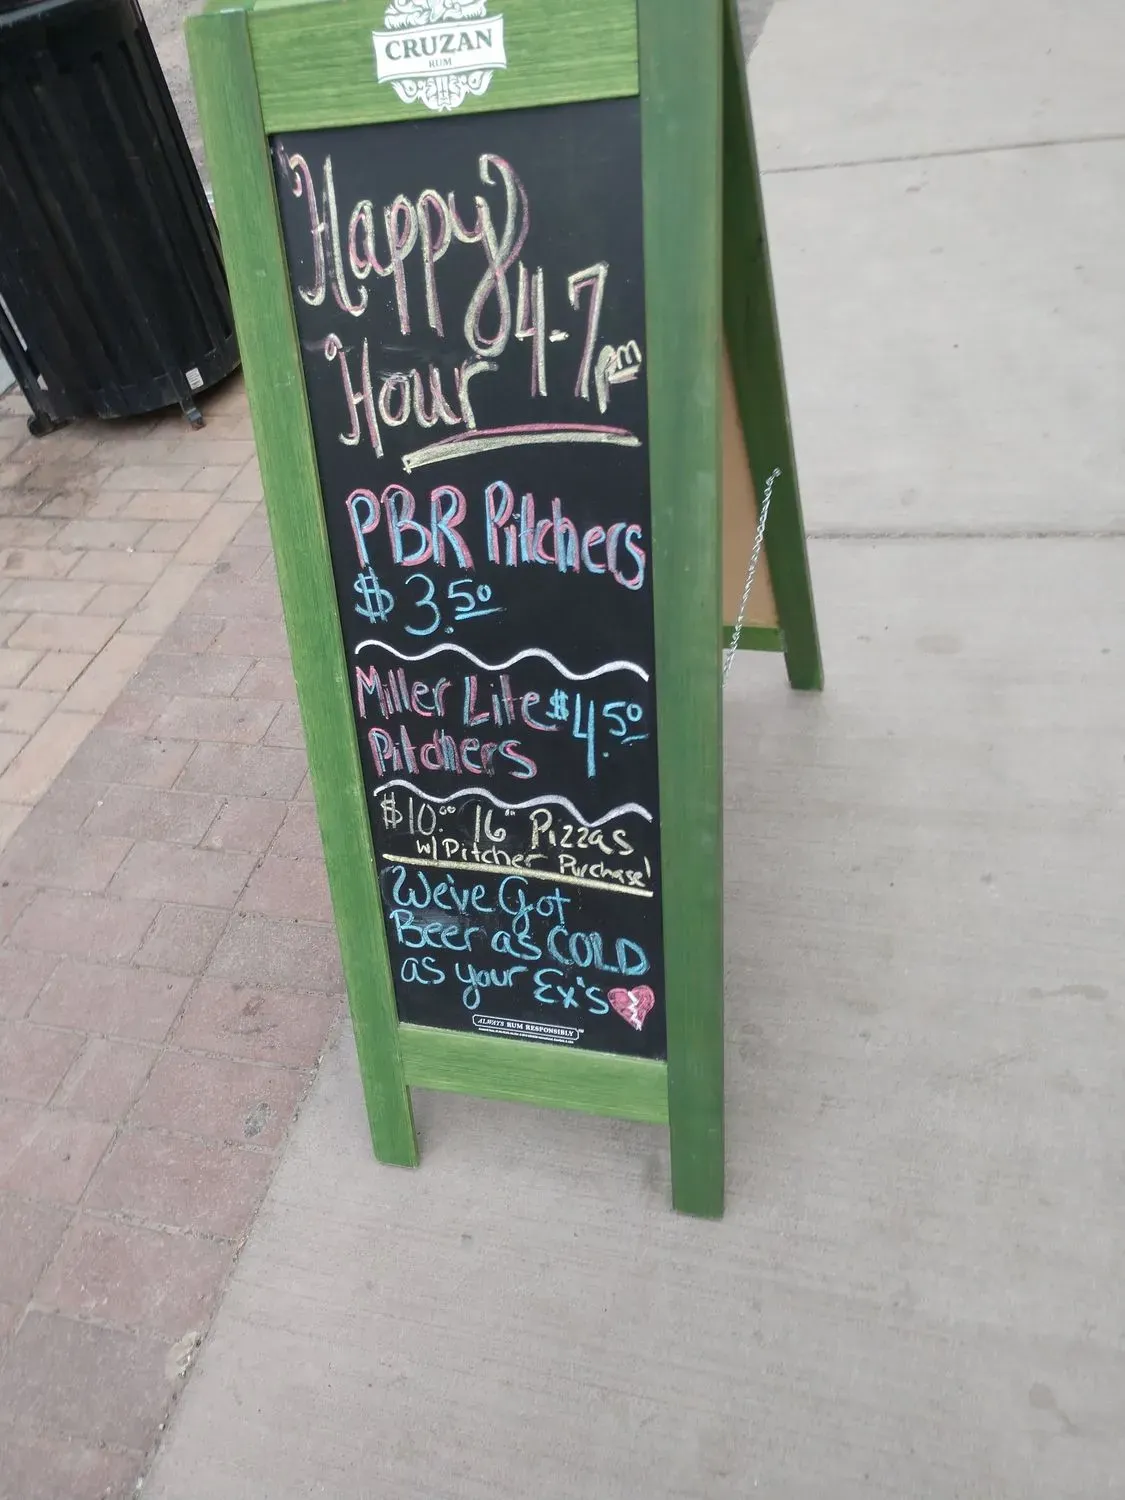 CRUZAN
RUM
Happy
Hour 4-7pm
PBR Pitchers
$3.50
Miller Lite $4.50
Pitchers
$10.00 16" Pizzas
w/ Pitcher Purchase!
We've Got
Beer as COLD
as your Ex's
ALWAYS RUM RESPONSIBLY